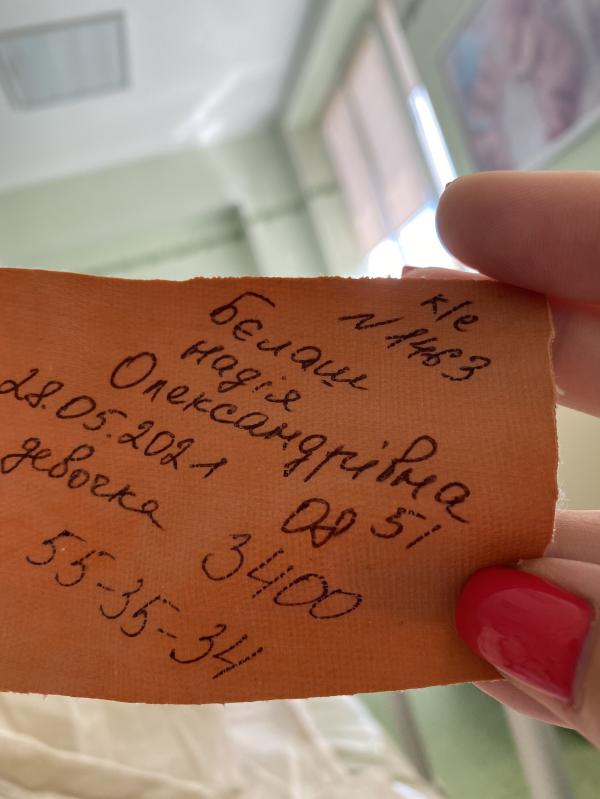 к/е
N 1463
Бєлаш
надія
Олександрівна
28.05.2021 08 51
девочка 3400
55-35-34